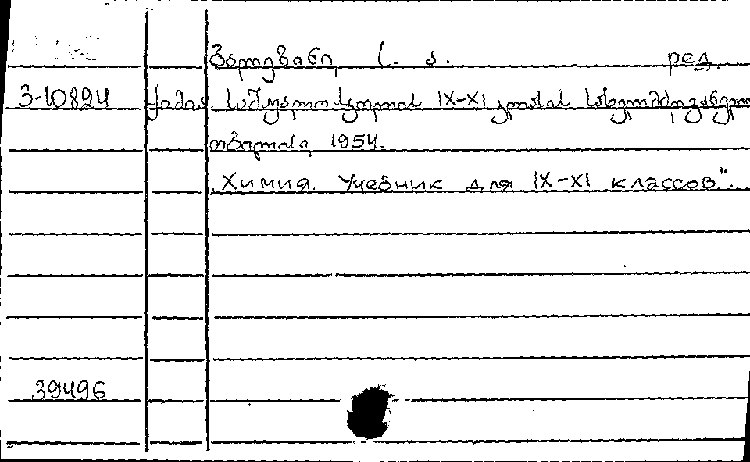 ს. ა. ред.
3-10824 ქიმია. საშუალო სკოლის IX-XI კლასის სახელმძღვანელო
თბილისი, 1954.
„Химия. Учебник для IX-XI классов".
39496